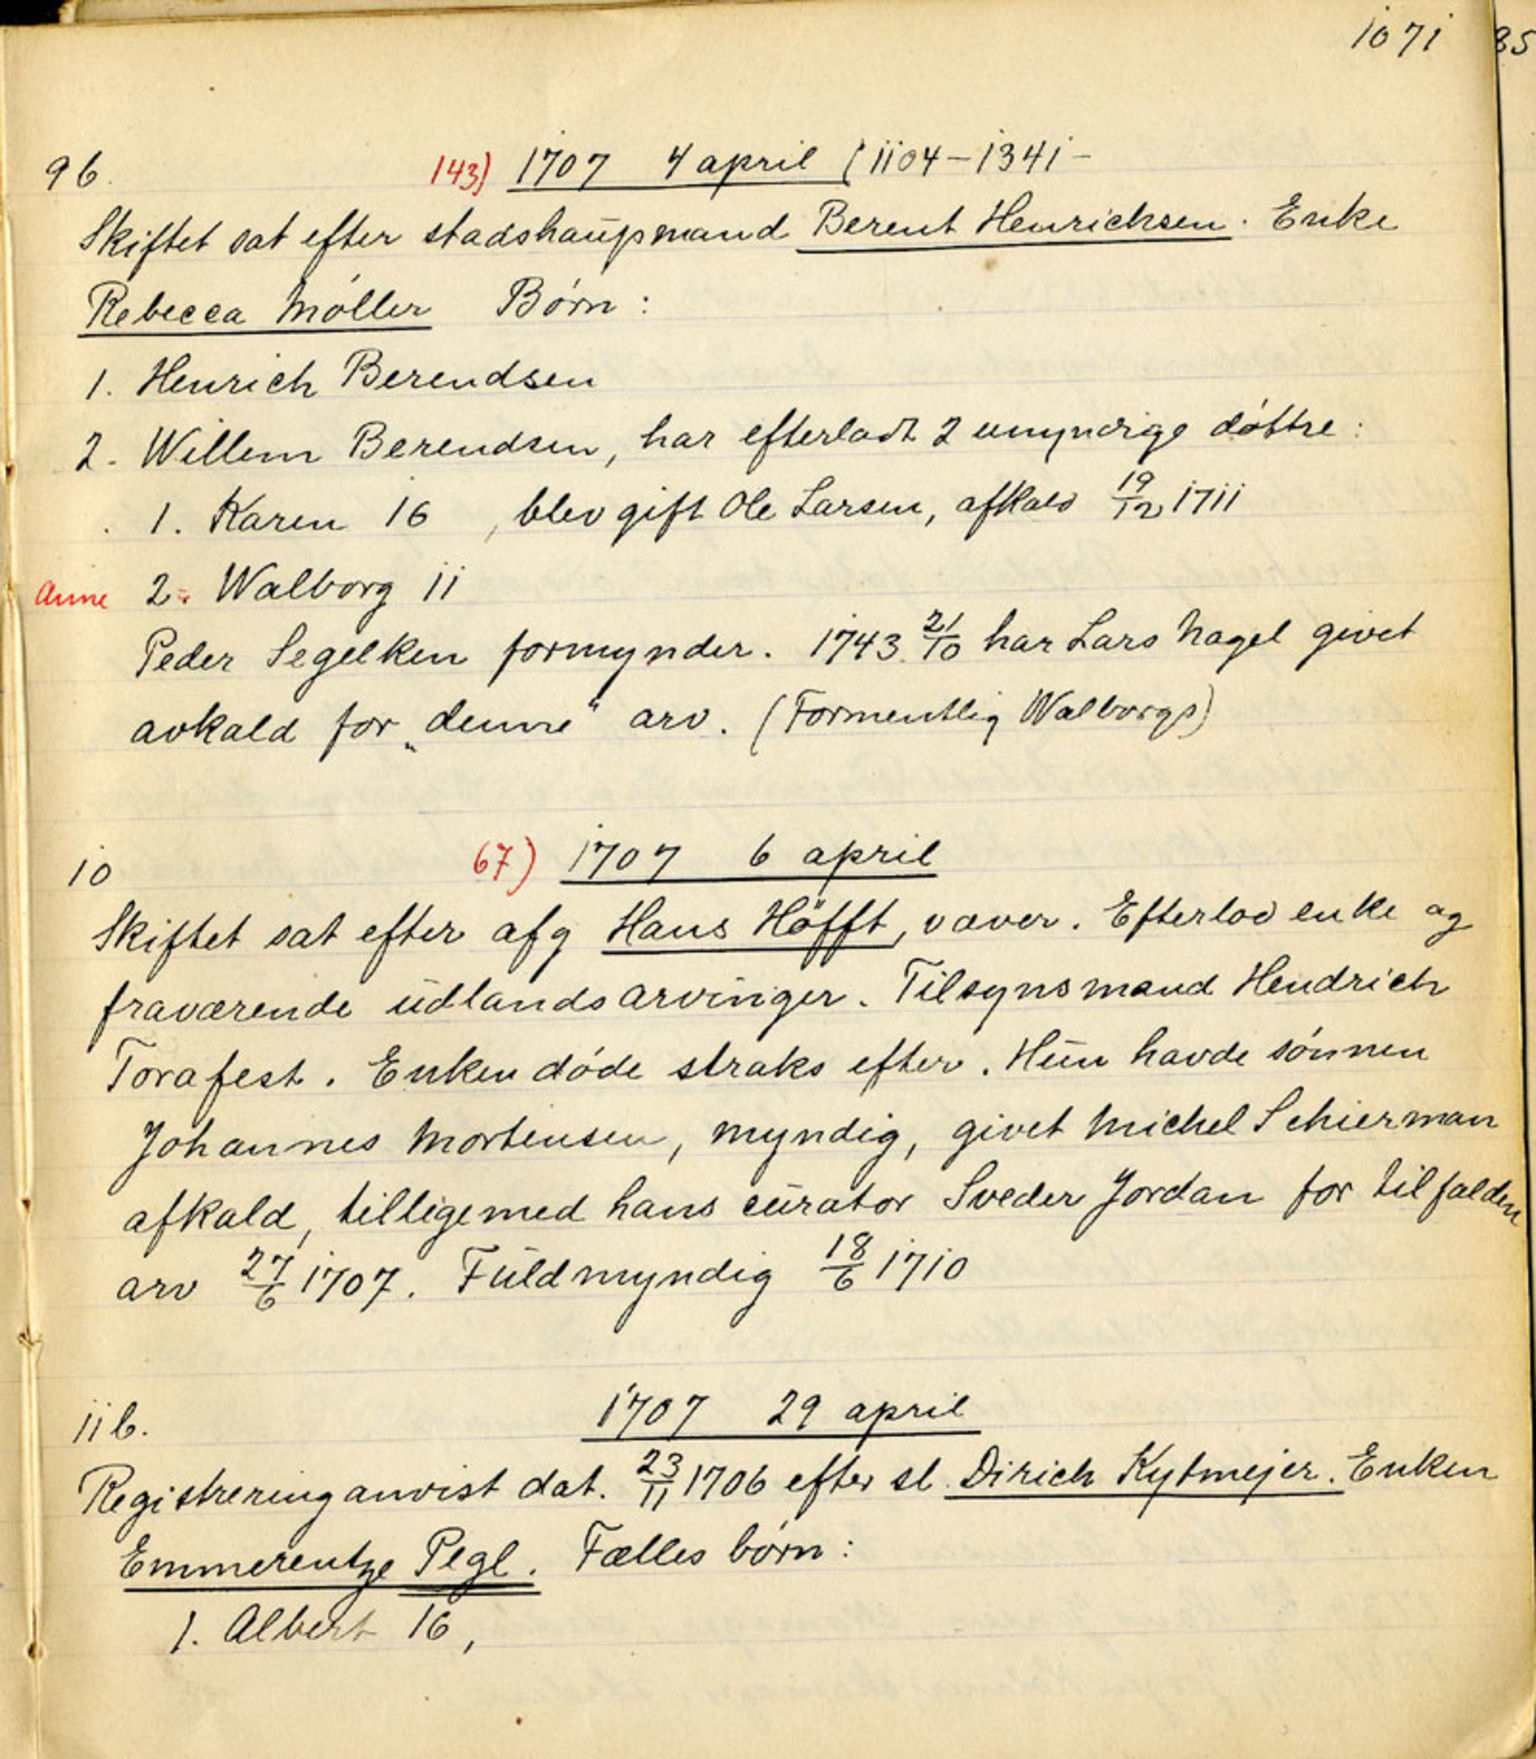 1071 85
96. 143) 1707 4 april (1104-1341-
Skiftet sat efter stadshaupmand Berent Henrichsen. Enke
Rebecca Møller Børn:
1. Henrich Berendsen
2. Willem Berendsen, har efterladt 2 umyndige døttre:
1. Karen 16, blev gift Ole Larsen, afkald 19/12 1711
Anne 2. Walborg 11
Peder Segelken formynder. 1743 21/10 har Lars Nagel givet
avkald for „denne“ arv. (Formentlig Walborgs)
10 67) 1707 6 april
Skiftet sat efter afg Hans Höfft, væver. Efterlod enke og
fraværende udlandsarvinger. Tilsynsmand Hendrich
Torafest. Enken døde straks efter. Hun havde sønnen
Johannes Mortensen, myndig, givet Michel Schierman
afkald, tilligemed hans curator Sveder Jordan for tilfalden
arv 27/6 1707. Fuldmyndig 18/6 1710
11b. 1707 29 april
Registrering anvist dat. 23/11 1706 efter sl. Dirich Kytmejer. Enken
Emmerentze Pegl. Fælles børn:
1. Albert 16,